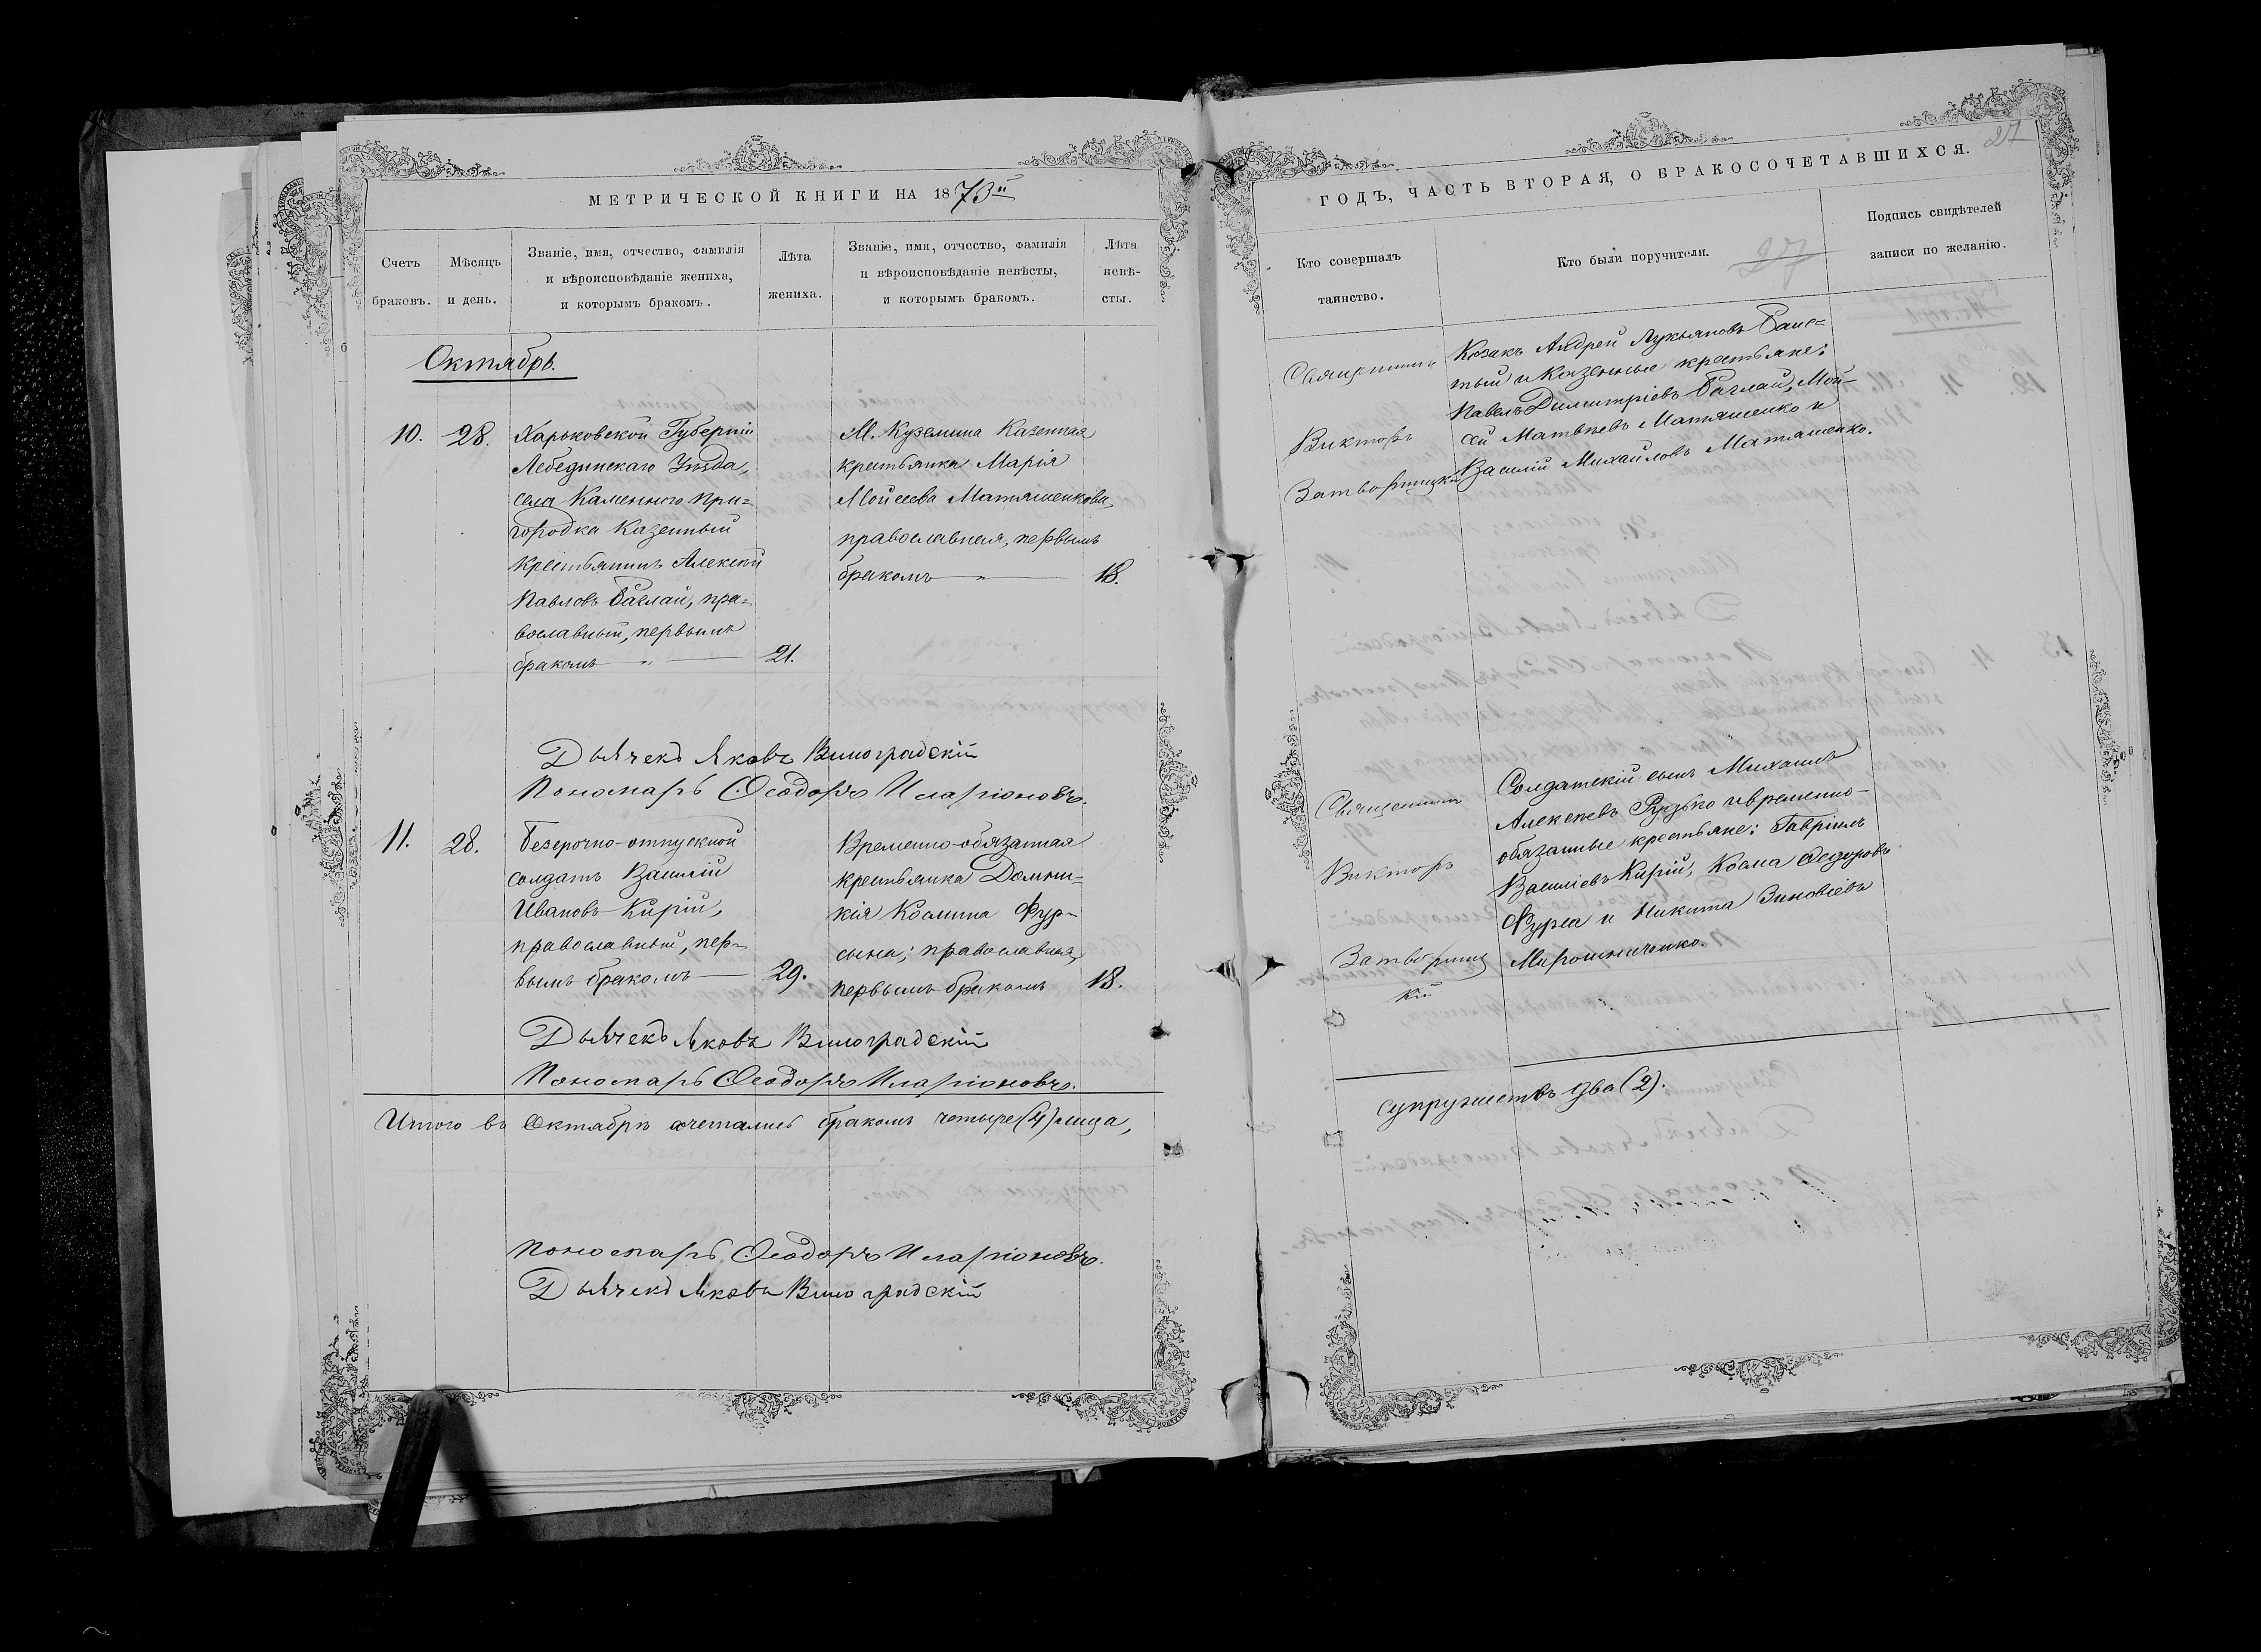 МЕТРИЧЕСКОЙ КНИГИ НА 1873й
Счетъ
браковъ.
Мѣсяцъ
и день.
Званіе, имя, отчество, фамилія
и вѣроисповѣданіе жениха,
и которымъ бракомъ.
Лѣта
жениха.
Званіе, имя, отчество, фамилія
и вѣроисповѣданіе невѣсты,
и которымъ бракомъ.
Лѣта
невѣ-
сты.
Октябрь.
10.
28.
Харьковской Губерніи
Лебединскаго Уѣзда,
села Каменного при-
городка Казенный
крестьянинъ Алексѣй
Павловъ Баглай, пра-
вославный, первымъ
бракомъ
21.
М. Куземина Казенная
крестьянка Марія
Мойсеева Матяшенкова,
православная, первымъ
бракомъ
18.
Дьячекъ Яковъ Виноградскій
Пономарь Ѳеодоръ Иларіоновъ.
11.
28.
Безсрочно-отпускной
солдатъ Василій
Ивановъ Кирій,
православный, пер-
вымъ бракомъ
29.
Временно-обязанная
крестьянка Домни-
кія Космина Фур-
сина; православная,
первымъ бракомъ
18.
Дьячекъ Яковъ Виноградскій
Пономарь Ѳеодоръ Иларіоновъ.
Итого въ Октябрѣ сочетались бракомъ четыре (4) лица,
Пономарь Ѳеодоръ Иларіоновъ.
Дьячекъ Яковъ Виноградскій
27
ГОДЪ, ЧАСТЬ ВТОРАЯ, О БРАКОСОЧЕТАВШИХСЯ.
Кто совершалъ
таинство.
Кто были поручители.
27
Подпись свидѣтелей
записи по желанію.
Священникъ
Викторъ
Затворницкій
Козакъ Андрей Лукьяновъ
тый и Казенные крестьяне:
Павелъ Димитріевъ Баглай, Мой-
сей Матвѣевъ Матяшенко и
Василій Михайловъ Матяшенко.
Священникъ
Викторъ
Затворниц
кій
Солдатскій сынъ Михаилъ
Алексѣевъ и временно-
обязанные крестьяне: Гавріилъ
Василіевъ Кирій, Косма Ѳедоровъ
Фурса и Никита Зиновіевъ
Мирошниченко.
супружествъ два (2).